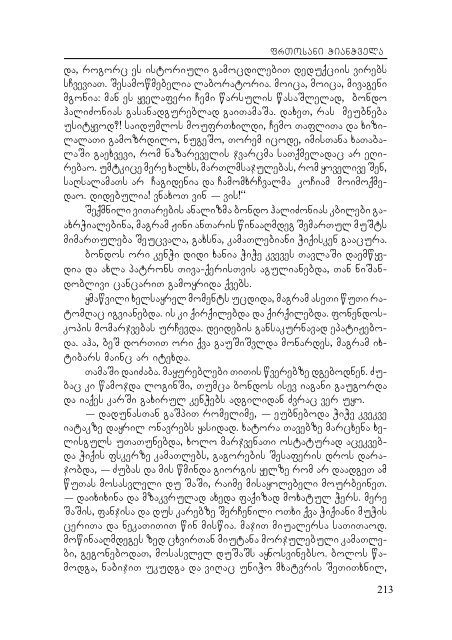 ფრთოსანი ჭიანჭველა
და, როგორც ეს ისტორიული გამოცდილებით დედუქციის ვირებს
სჩვევიათ. შესამოწმებელია ლაბორატორია. მოიცა, მოიცა, მივაგენი
მგონია: მან ეს ყველაფერი ჩემი წარსულის წასაშლელად, ბონდო
ჰალიძონიას გასანადგურებლად გაითამაშა. დახეთ, რას მეუბნება
უსიტყვოდ?! საიდუმლოს მოუფრთხილდი, ჩემო თაფლითა და ხიზი-
ლალათი გამოზრდილო, ნუგეშო, თორემ იცოდე, იმისთანა ხათაბა-
ლაში გაეხვევი, რომ ნაზარეველის ჯვარცმა სათქმელადაც არ ეღი-
რებაო. უმტკიცე მერე ხალხს, მართლმსაჯულებას, რომ ყოველივე შენ,
საღსალამათს არ ჩაგიდენია და ჩამომხრჩვალმა კოჩიამ მოიმოქმე-
დაო. დიდებულია! ვნახოთ ვინ — ვის!“
შექმნილი ვითარების ანალიზმა ბონდო ჰალიძონიას კბილები გა-
ახრჭიალებინა, მაგრამ ჟინი ანთარის წინააღმდეგ შემართულ მუშტს
მიმართულება შეუცვალა, გახსნა, კამათლებიანი ჭიქისკენ გააცურა.
ბონდოს ორი კენჭი დიდი ხანია ჭიჭე კვეკვეს თავლაში დაემწყვ-
დია და ახლა პატრონს თივა-ქერისთვის აგულიანებდა, თან ნიშან-
დობლივი ცანცარით გამოყრიდა ქვებს.
ყმაწვილი ხელსაყრელ მომენტს უცდიდა, მაგრამ ასეთი წუთი რა-
ტომღაც იგვიანებდა. ის კი ქირქილებდა და ქირქილებდა. ფონენდოს-
კოპის მომარჯვებას ურჩევდა. დეიდების განსაკურნავად ეპატიჟებო-
და. აჰა, ბეშ დორთით ორი ქვა გაუშიშვლდა მონარდეს, მაგრამ იხ-
ტიბარს მაინც არ იტეხდა.
თამაში დაიძაბა. მაყურებლები თითის წვერებზე დგებოდნენ. ძუ-
ბაც კი წამოჯდა ლოგინში, თუმცა ბონდოს ისევ იაგანი გაუგორდა
და იაქეს კარში გახირულ კენჭებს ადგილიდან ძვრაც ვერ უყო.
— დადუნასთან გაშპით რომელიმე, — ეუბნებოდა ჭიჭე კვეკვე
იატაკზე დაყრილ ონავრებს ყასიდად. ხატორა თავებზე მარცხენა ხე-
ლისგულს უთათუნებდა, ხოლო მარჯვენათი ოსტატურად აცეკვებ-
და ჭიქის ფსკერზე კამათლებს, გაგორების შესაფერის დროს დარა-
ჯობდა, — ძუბას და მის წმინდა გიორგის ყელზე რომ არ დაადგეთ ამ
წუთას მოსასვლელი დუ შაში, რაიმე მისაყოლებელი მოურბეინეთ.
— დაიხიხინა და მზაკვრულად ახედა ფაქიზად მოხატულ ჭერს. მერე
შაშის, ფანჯისა და დუს კარებზე შერჩენილი ოთხი ქვა ჭიქიანი მუჭის
ცერითა და ნეკათითით წინ მისწია. მაჯით მიუალერსა სათითაოდ.
მოწინააღმდეგეს ზედ ცხვირთან მიუტანა მორჯულებული კამათლე-
ბი, გეგონებოდათ, მოსასვლელ დუშაშს აყნოსვინებსო. ბოლოს წა-
მოდგა, ნაბიჯით უკუდგა და ვიღაც უნიჭო მხატვრის შეთითხნილ,
213